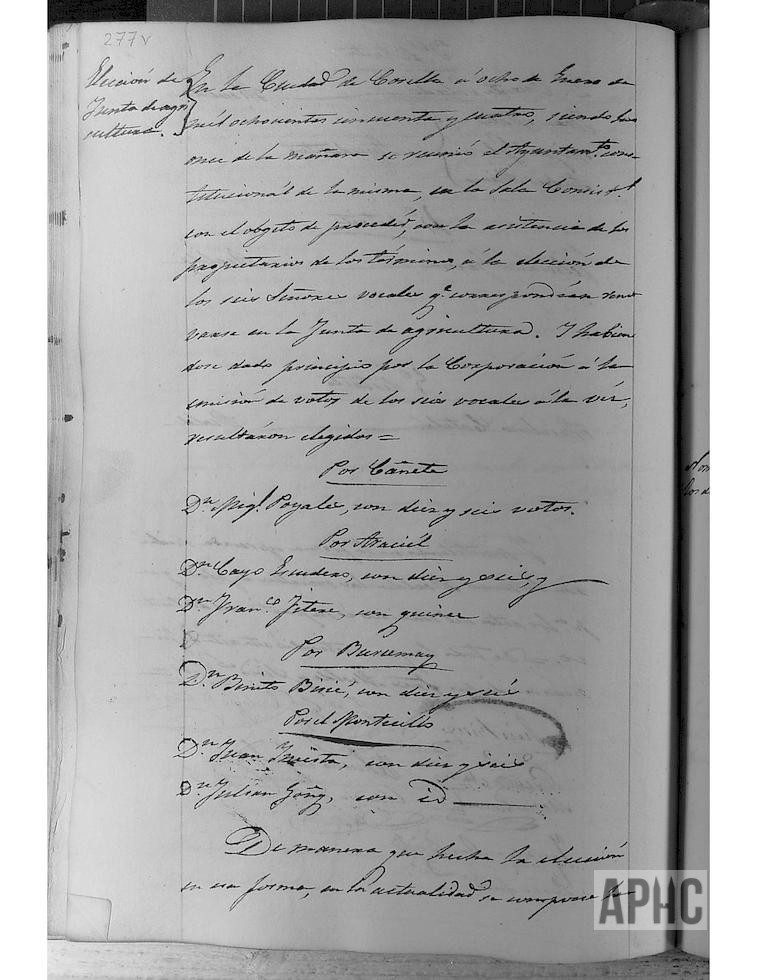 277v
Elección de
Junta de agri
cultura.
En la Ciudad de Corella á ocho de Enero de
mil ochocientos cincuenta y cuatro, siendo las
once de la mañana se reunió el Ayuntamto. cons-
titucional de la misma, en la Sala Consistl.
con el objeto de proceder, con la asistencia de los
propietarios de los términos, á la elección de
los seis Señores vocales qe. correspondían reno
varse en la Junta de agricultura. Y habien
dose dado principio por la Corporación á la
emisión de votos de los seis vocales á la vez,
resultaron elegidos =
Por Cañete
Dn. Migl. Poyales, con diez y seis votos.
Por Araciel
Dn. Cayo Escudero, con diez y seis, y
Dn. Franco. Jitere, con quince
Por Burcemay
Dn. Benito Birié, con diez y seis
Por el Montecillo
Dn. Juan, con diez y seis
Dn. Julian Goñy, con id
De manera que hecha la elección
en esa forma, en la actualidad se compone la
APHC